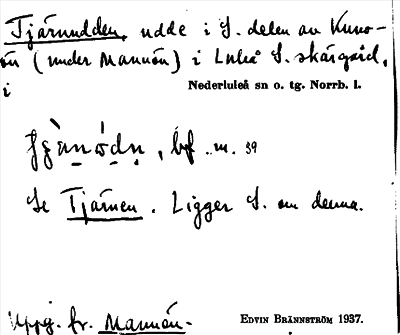 Tjärnudden, udde i S. delen av Kuno-
ön (under Mannön) i Luleå S. skärgård,
i Nederluleå sn o. tg. Norrb. l.
bf. m. 39
Se Tjärnen. Ligger S. om denna.
Uppg. fr. Mannön. EDVIN BRÄNNSTRÖM 1937.